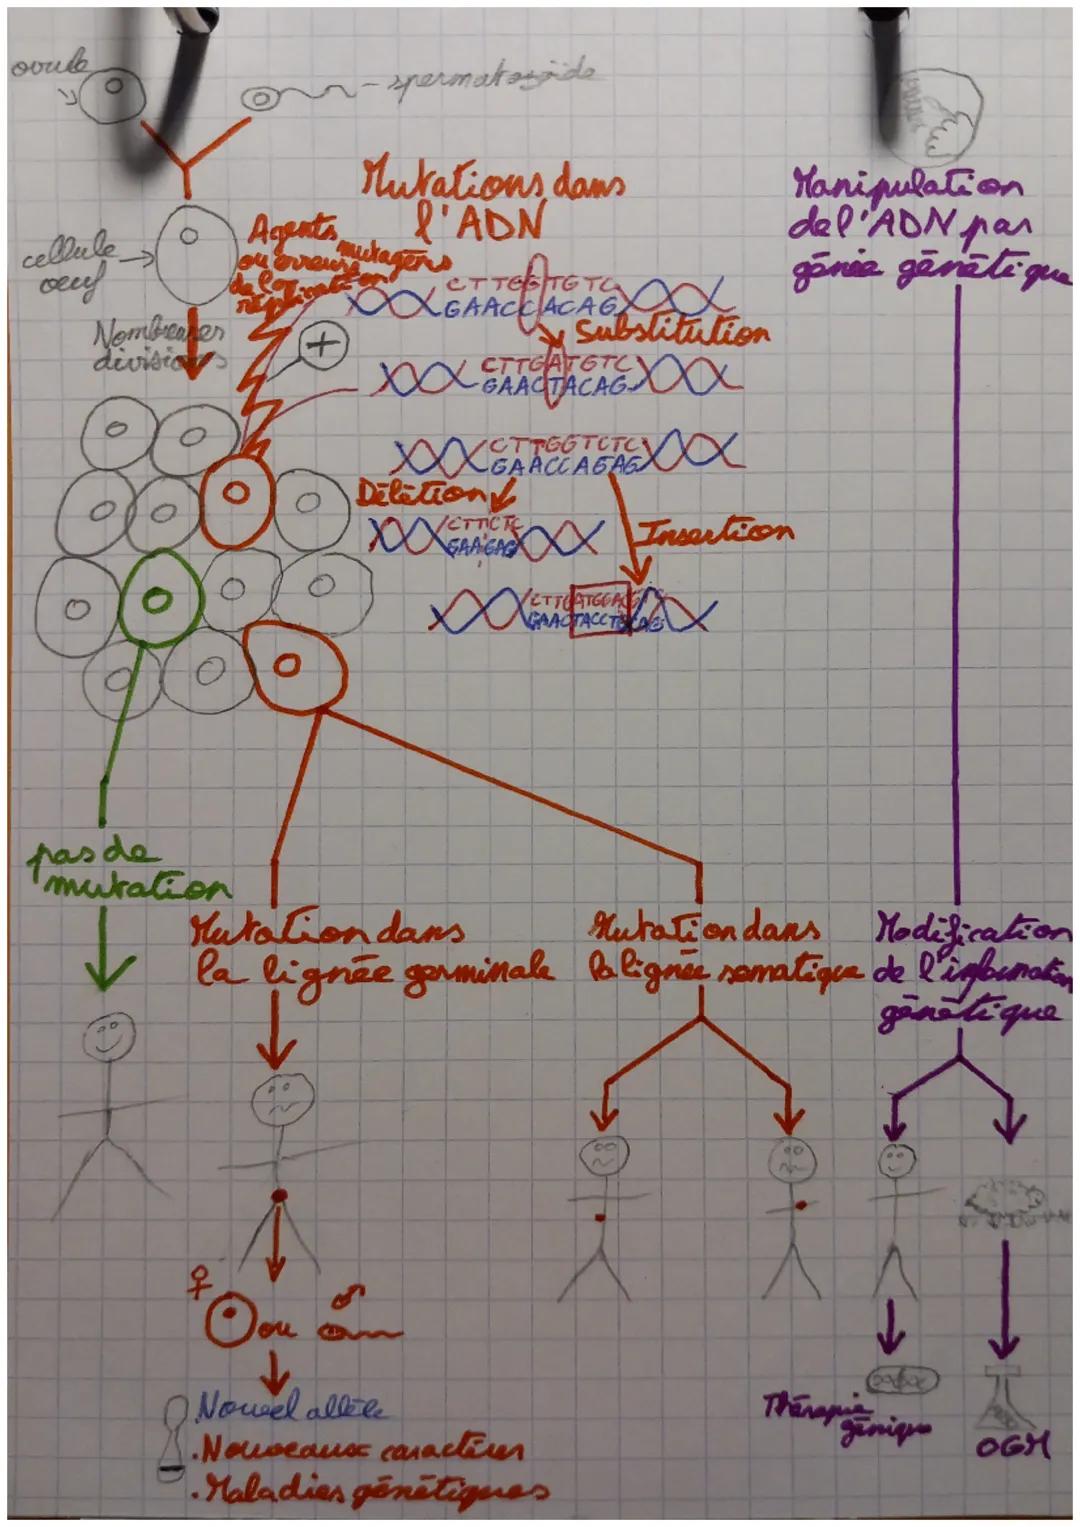 ovule
spermatozoïde
Mutations dans
l'ADN
Manipulation
de l'ADN par
génie génétique
cellule
oeuf
Agents
mutagens
ou erreurs
de la
réplication
Nombreuses
divisions
+
CTTGGTGTC
GAACCACAG
Substitution
CTTGATGTC
GAACTACAG
CTTGGTCTC
GAACCAGAG
Délétion
CTTCTC
GAAGAG
Insertion
CTTGATGGAC
GAACTACCTG CAG
pas de
mutation
Mutation dans
la lignée germinale
Mutation dans
la lignée somatique
Modification
de l'information
génétique
♀
♂
ou
Nouvel allèle
. Nouveaux caractères
. Maladies génétiques
Thérapie
génique
OGM